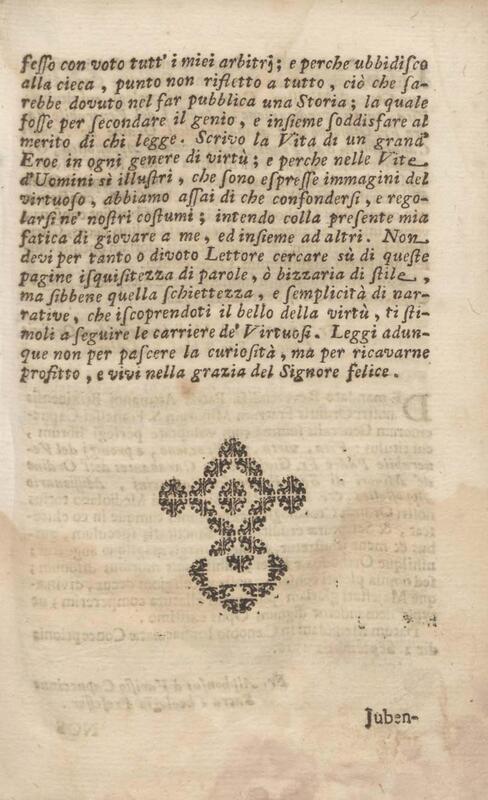 fesso con voto tutt' i miei arbitrj; e perche ubbidisco
alla cieca, punto non rifletto a tutto, ciò che sa-
rebbe dovuto nel far pubblica una Storia; la quale
fosse per secondare il genio, e insieme soddisfare al
merito di chi legge. Scrivo la Vita di un grand'
Eroe in ogni genere di virtù; e perche nelle Vite
d'Uomini sì illustri, che sono espresse immagini del
virtuoso, abbiamo assai di che confondersi, e rego-
larsi ne' nostri costumi; intendo colla presente mia
fatica di giovare a me, ed insieme ad altri. Non
devi per tanto o divoto Lettore cercare sù di queste
pagine isquisitezza di parole, ò bizzaria di stile,
ma sibbene quella schiettezza, e semplicità di nar-
rative, che iscoprendoti il bello della virtù, ti sti-
moli a seguire le carriere de' Virtuosi. Leggi adun-
que non per pascere la curiosità, ma per ricavarne
profitto, e vivi nella grazia del Signore felice.
Juben-